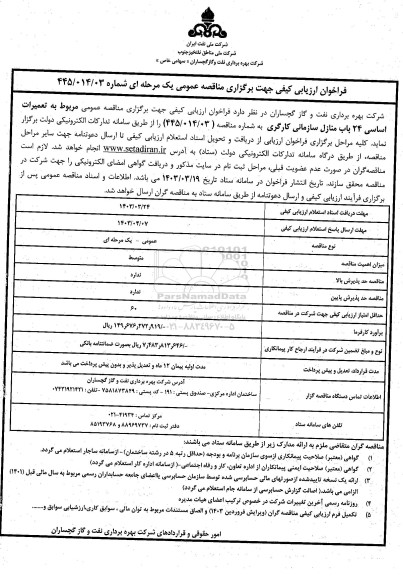 شرکت ملی نفت ایران
شرکت ملی مناطق نفتخیز جنوب
شرکت بهره برداری نفت و گاز گچساران «سهامی خاص»
فراخوان ارزیابی کیفی جهت برگزاری مناقصه عمومی یک مرحله ای شماره ۴۴۵/۰۱۴/۰۳
شرکت بهره برداری نفت و گاز گچساران در نظر دارد فراخوان ارزیابی کیفی جهت برگزاری مناقصه عمومی مربوط به تعمیرات
اساسی ۲۴ باب منازل سازمانی کارگری به شماره مناقصه (۴۴۵/۰۱۴/۰۳) را از طریق سامانه تدارکات الکترونیکی دولت برگزار
نماید. کلیه مراحل برگزاری فراخوان ارزیابی از دریافت و تحویل اسناد استعلام ارزیابی کیفی تا ارسال دعوتنامه جهت سایر مراحل
مناقصه، از طریق درگاه سامانه تدارکات الکترونیکی دولت (ستاد) به آدرس www.setadiran.ir انجام خواهد شد. لازم است
مناقصه‌گران در صورت عدم عضویت قبلی، مراحل ثبت نام در سایت مذکور و دریافت گواهی امضای الکترونیکی را جهت شرکت در
مناقصه محقق سازند. تاریخ انتشار فراخوان در سامانه ستاد تاریخ ۱۴۰۳/۰۳/۱۹ می باشد. اطلاعات و اسناد مناقصه عمومی پس از
برگزاری فرآیند ارزیابی کیفی و ارسال دعوتنامه از طریق سامانه ستاد به مناقصه گران ارسال خواهد شد.
مهلت دریافت اسناد استعلام ارزیابی کیفی ۱۴۰۳/۰۳/۲۴
مهلت ارسال پاسخ استعلام ارزیابی کیفی ۱۴۰۳/۰۴/۰۷
نوع مناقصه عمومی - یک مرحله ای
میزان اهمیت مناقصه متوسط
مناقصه حد پذیرش بالا ندارد
مناقصه حد پذیرش پایین ندارد
حداقل امتیاز ارزیابی کیفی جهت شرکت در مناقصه ۶۰
برآورد کارفرما ۱۴۹,۶۷۶,۲۷۲,۹۱۹/- ریال
نوع و مبلغ تضمین شرکت در فرآیند ارجاع کار پیمانکاری ۷,۴۸۳,۸۱۳,۶۴۶/- ریال بصورت ضمانتنامه بانکی
مدت قرارداد، تعدیل و پیش پرداخت مدت اولیه پیمان ۱۲ ماه و تعدیل پذیر و بدون پیش پرداخت می باشد
اطلاعات تماس دستگاه مناقصه گزار آدرس شرکت بهره برداری نفت و گاز گچساران
ساختمان اداره مرکزی- صندوق پستی: ۱۹۱ - کد پستی: ۷۵۸۱۸۷۳۸۴۹ - تلفن: ۰۷۴۳۱۹۲۱۴۲۱
تلفن های سامانه ستاد مرکز تماس: ۴۱۹۳۴-۰۲۱
دفتر ثبت نام: ۸۸۹۶۹۷۳۷ و ۸۵۱۹۳۷۶۸
مناقصه گران متقاضی ملزم به ارائه مدارک زیر از طریق سامانه ستاد می باشند:
۱) گواهی (معتبر) صلاحیت پیمانکاری ازسوی سازمان برنامه و بودجه (حداقل رتبه ۵ در رشته ساختمان) - ازسامانه ساجار استعلام می گردد.
۲) گواهی (معتبر) صلاحیت ایمنی پیمانکاران از اداره تعاون، کار و رفاه اجتماعی - (ازسامانه اداره کار استعلام می گردد)
۳) ارائه یک نسخه تاییدشده ازصورتهای مالی حسابرسی شده توسط سازمان حسابرسی یااعضای جامعه حسابداران رسمی مربوط به سال مالی قبل (۱۴۰۱)
الزامی می باشد.( اصالت گزارش حسابرسی از سامانه جام استعلام می گردد)
۴) روزنامه رسمی آخرین تغییرات شرکت در خصوص ترکیب اعضای هیات مدیره
۵) تکمیل فرم ارزیابی کیفی مناقصه گران (ویرایش فروردین ۱۴۰۳) و الصاق مستندات مربوط به توان مالی، سوابق کاری،ارزشیابی سوابق و.......
امور حقوقی و قراردادهای شرکت بهره برداری نفت و گاز گچساران
ParsNamadData
۰۲۱-۸۸۳۴۹۶۷۰-۵